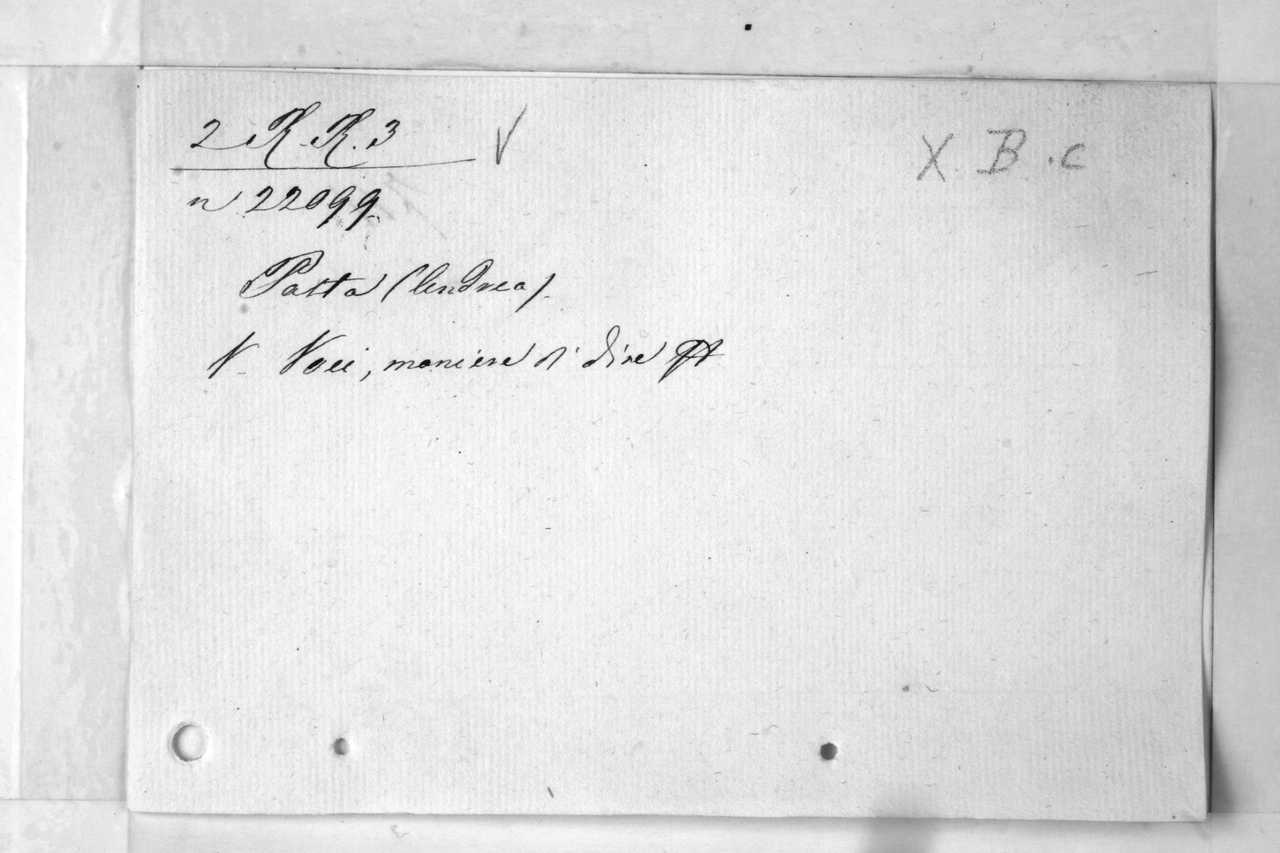 2 R. R. 3 V
X. B. c
n 22099.
Pasta (Andrea).
V. Voci, maniere di dire